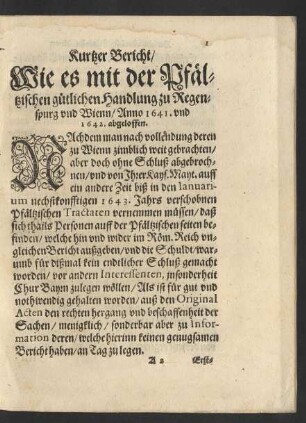 1
Kurtzer Bericht/
Wie es mit der Pfäl-
tzischen gütlichen Handlung zu Regen-
spurg vnd Wienn/ Anno 1641. vnd
1642. abgeloffen.
NAchdem man nach vollendung deren
zu Wienn zimblich weit gebrachten/
aber doch ohne Schluß abgebroch-
nen/ vnd von Jhrer Kays. Mayt. auff
ein andere Zeit biß in den Ianuari-
um nechstkonfftigen 1643. Jahrs verschobnen
Pfältzischen Tractaten vernemmen müssen/ daß
sich thails Personen auff der Pfältzischen seiten be-
finden/ welche hin vnd wider im Röm. Reich vn-
gleichen Bericht außgeben/ vnd die Schuldt/ war-
umb für dißmal kein endlicher Schluß gemacht
worden/ vor andern Interessenten, insonderheit
Chur Bayrn zulegen wöllen/ Als ist für gut vnd
nothwendig gehalten worden/ auß den Original
Acten den rechten hergang vnd beschaffenheit der
Sachen/ menigklich/ sonderbar aber zu Infor-
mation deren/ welche hierinn keinen genugsamen
Bericht haben/ an Tag zu legen.
A 2 Erst-